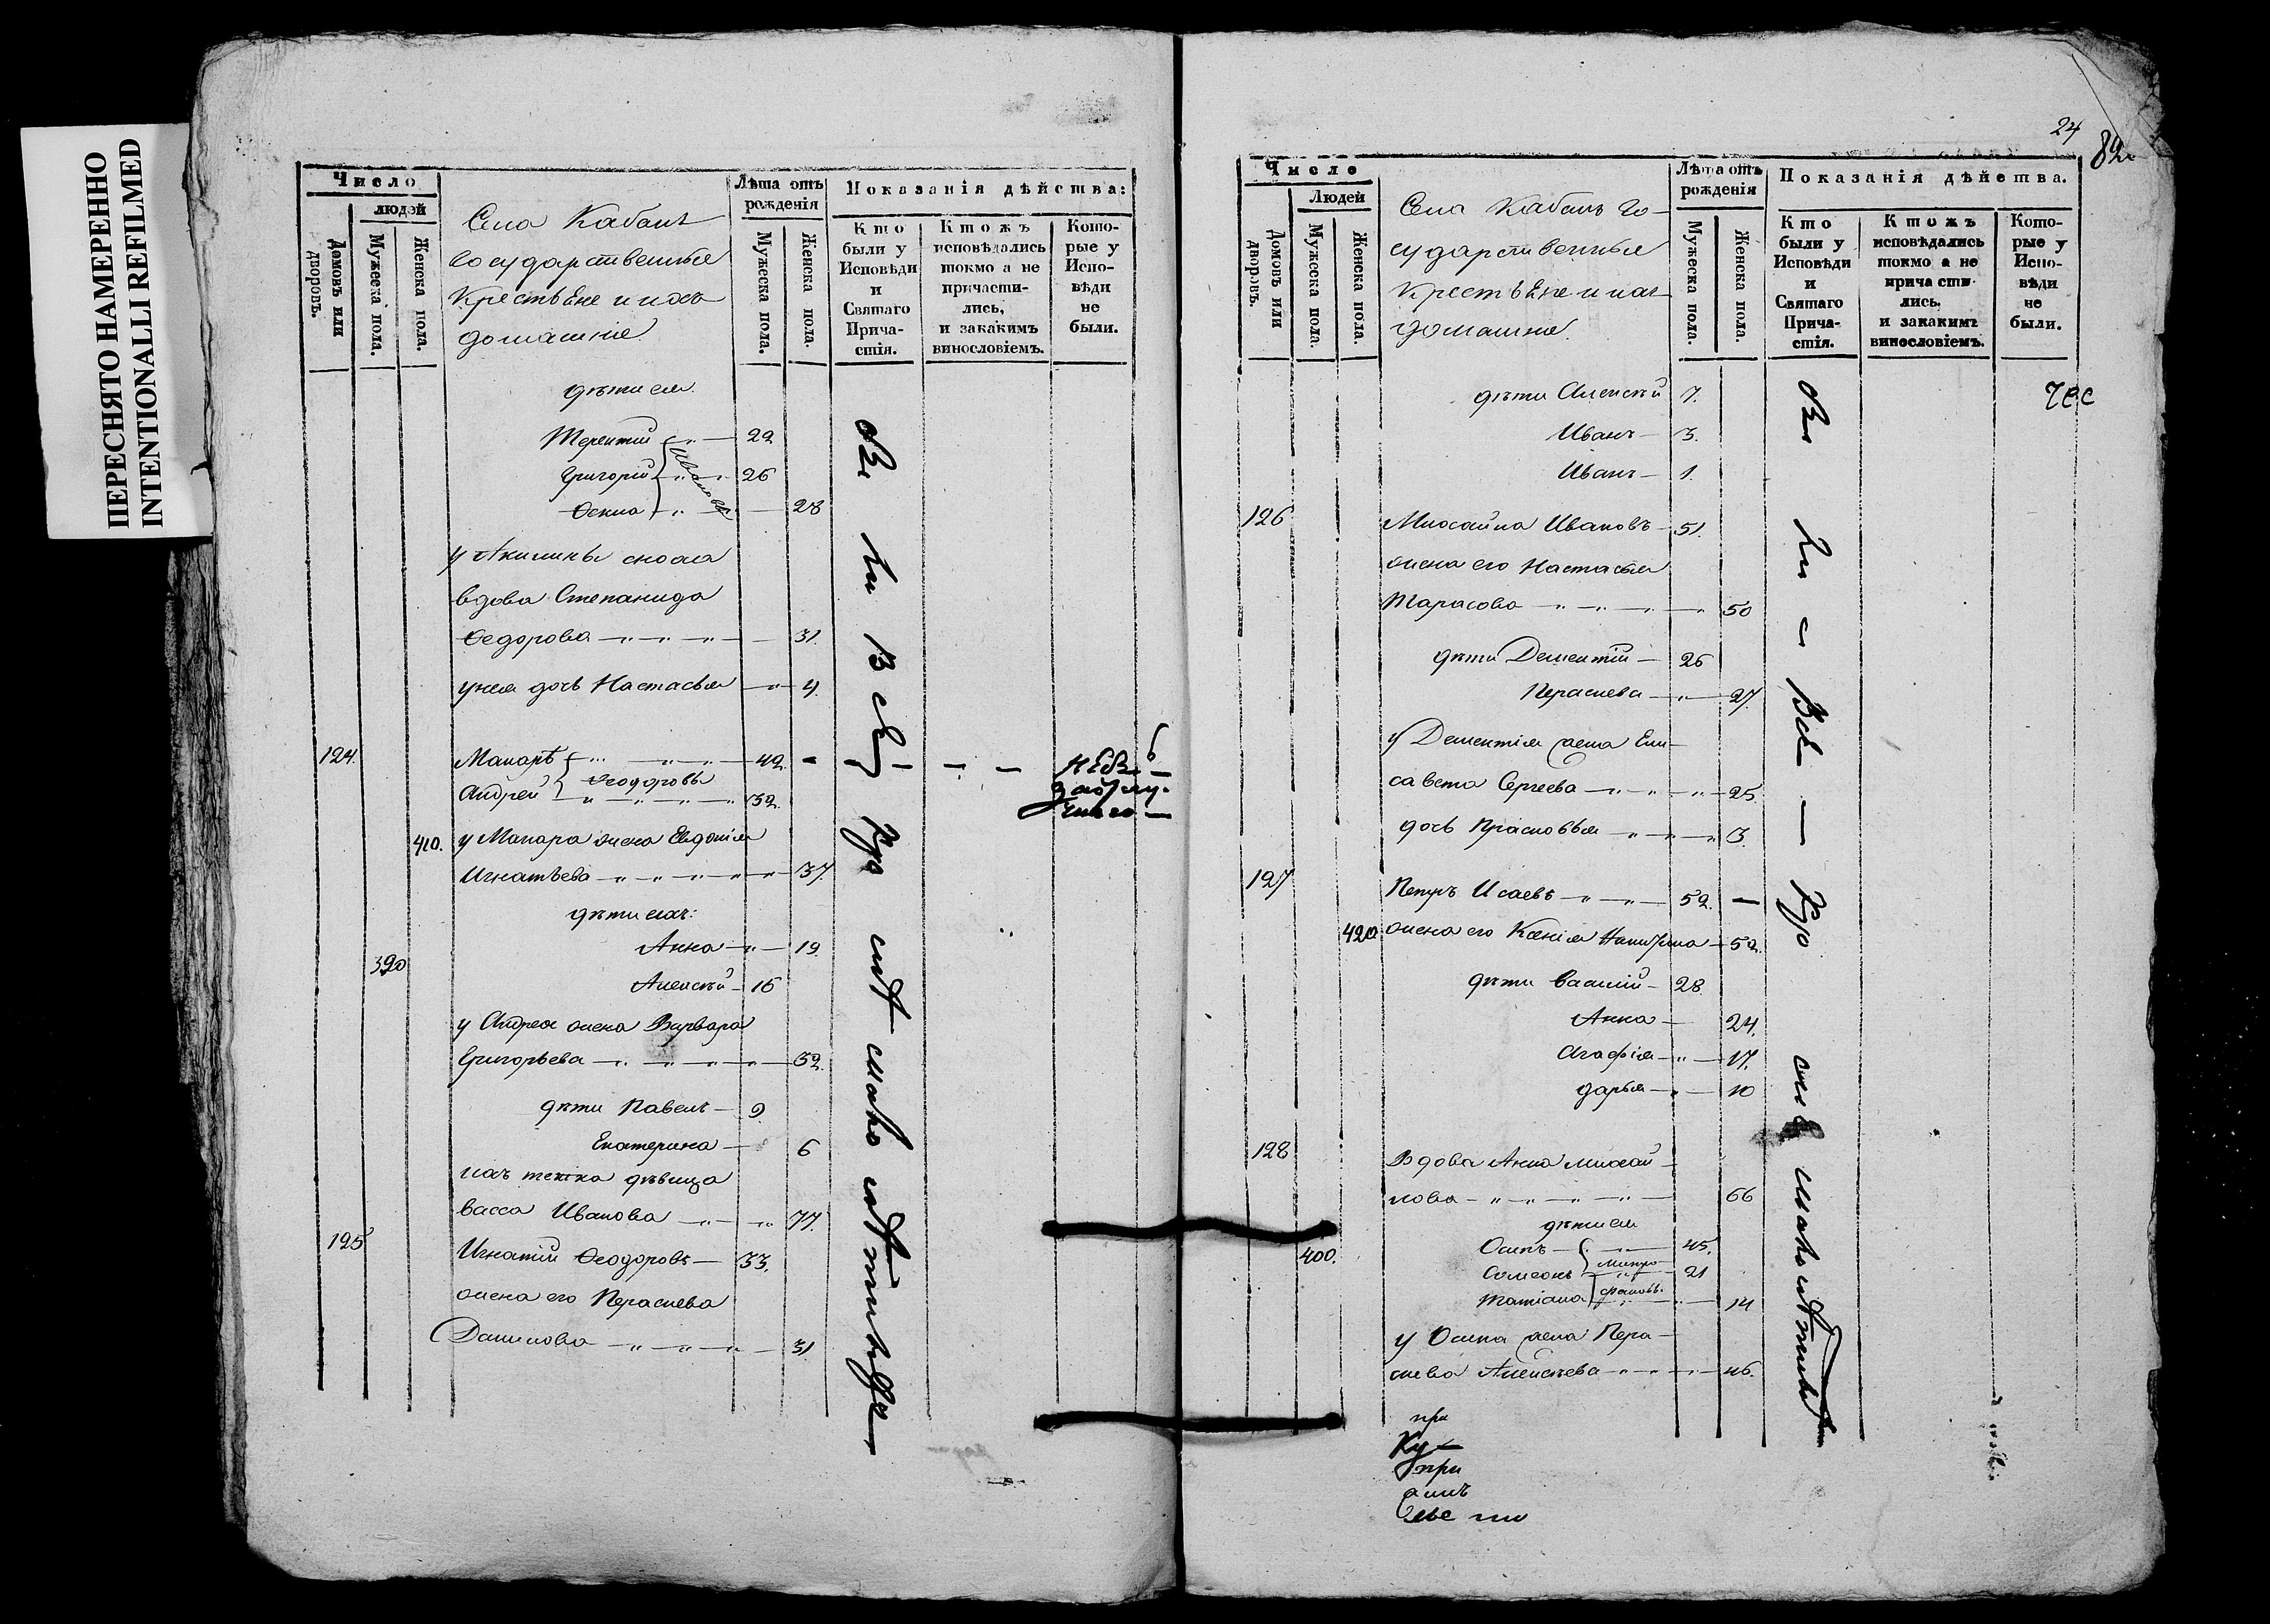 ПЕРЕСНЯТО НАМЕРЕННО
INTENTIONALLI REFILMED
Число
людей
Домовъ или дворовъ.
Мужеска пола.
Женска пола.
Села Кабанъ
государственныя
крестьѣне и ихъ
домашніе
Лѣта отъ рожденія
Мужеска пола.
Женска пола.
Показанія дѣйства:
Кто были у Исповѣди и Святаго Причастія.
Ктожъ исповѣдались токмо а не причастились, и закакимъ винословіемъ.
Которые у Исповѣди не были.
дѣти ея
Терентий 22
Григорий 26
Ивановы
Ѳекла 28
у Акилины сноха
вдова Степанида
Ѳедорова 31.
у нея дочь Настасья 4.
124. Макаръ 42.
Ѳеодоровы
Андрей 32.
410. у Макара жена Евдокія
Игнатьева 37.
дѣти ихъ:
Анна 19.
390
Алексѣй 16
у Андрея жена Варвара
Григорьева 32.
дѣти Павелъ 9.
Екатерина 6
ихъ тетка дѣвица
Васса Иванова 77.
125 Игнатій Ѳеодоровъ 33.
жена его Параскева
Данилова 31.
24
82
Число
Людей
Домовъ или дворовъ.
Мужеска пола.
Женска пола.
Села Кабанъ го-
сударственныя
крестьѣне и ихъ
домашніе.
Лѣта отъ рожденія
Мужеска пола.
Женска пола.
Показанія дѣйства.
Кто были у Исповѣди и Святаго Причастія.
Ктожъ исповѣдались токмо а не причастились, и закакимъ винословіемъ.
Которые у Исповѣди не были.
дѣти Алексѣй 7.
Иванъ 3.
Иванъ 1.
126 Михайла Ивановъ 51.
жена его Настасья
Тарасова 50
дѣти Дементій 26
Параскева 27.
у Дементія жена Ели-
савета Сергеева 25
дочь Прасковья 3.
127 Петръ Исаевъ 52.
420 жена его Ксенія 52.
дѣти Василій 28
Анна 24.
Агафія 17.
Дарья 10
128 Вдова Анна Михай-
лова 66
дѣти ея
400. Осипъ 45.
Симеонъ 21
Митро-
фановы
Татіана 14
у Осипа жена Пара-
скева Алексѣева 46.
при